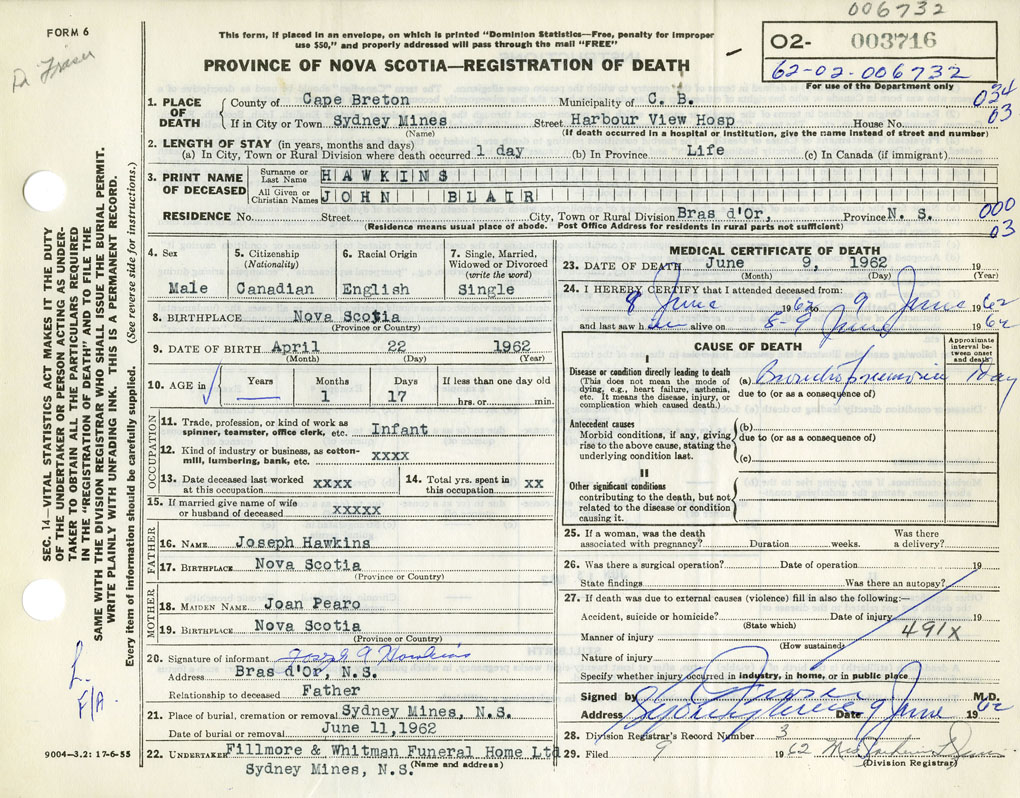 006732
FORM 6
Dr Fraser
This form, if placed in an envelope, on which is printed "Dominion Statistics—Free, penalty for improper
use $50," and properly addressed will pass through the mail "FREE"
PROVINCE OF NOVA SCOTIA—REGISTRATION OF DEATH
O2- 003716
62-02-006732
For use of the Department only
034
03
1. PLACE OF DEATH { County of Cape Breton Municipality of C. B.
If in City or Town Sydney Mines Street Harbour View Hosp House No.
(Name) (If death occurred in a hospital or institution, give the name instead of street and number)
2. LENGTH OF STAY (in years, months and days)
(a) In City, Town or Rural Division where death occurred 1 day (b) In Province Life (c) In Canada (if immigrant)
3. PRINT NAME OF DECEASED { Surname or Last Name HAWKINS
All Given or Christian Names JOHN BLAIR
RESIDENCE No. Street City, Town or Rural Division Bras d'Or, Province N. S.
(Residence means usual place of abode. Post Office Address for residents in rural parts not sufficient)
000
03
4. Sex
Male
5. Citizenship
(Nationality)
Canadian
6. Racial Origin
English
7. Single, Married,
Widowed or Divorced
(write the word)
Single
8. BIRTHPLACE Nova Scotia
(Province or Country)
9. DATE OF BIRTH April 22 1962
(Month) (Day) (Year)
10. AGE in Years Months Days If less than one day old
1 17 hrs. or min.
OCCUPATION
11. Trade, profession, or kind of work as
spinner, teamster, office clerk, etc. Infant
12. Kind of industry or business, as cotton-
mill, lumbering, bank, etc. xxxx
13. Date deceased last worked
at this occupation xxxx
14. Total yrs. spent in
this occupation xx
15. If married give name of wife
or husband of deceased xxxxx
FATHER
16. NAME Joseph Hawkins
17. BIRTHPLACE Nova Scotia
(Province or Country)
MOTHER
18. MAIDEN NAME Joan Pearo
19. BIRTHPLACE Nova Scotia
(Province or Country)
20. Signature of informant Joseph A Hawkins
Address Bras d'Or, N.S.
Relationship to deceased Father
21. Place of burial, cremation or removal Sydney Mines, N.S.
Date of burial or removal June 11,1962
22. UNDERTAKER Fillmore & Whitman Funeral Home Ltd
Sydney Mines, N.S. (Name and address)
MEDICAL CERTIFICATE OF DEATH
23. DATE OF DEATH June 9, 1962 19
(Month) (Day) (Year)
24. I HEREBY CERTIFY that I attended deceased from:
8 June 1962 to 9 June 1962
and last saw him alive on 8-9 June 1962
CAUSE OF DEATH
Approximate interval between onset and death
I
Disease or condition directly leading to death
(This does not mean the mode of
dying, e.g., heart failure, asthenia,
etc. It means the disease, injury, or
complication which caused death.)
(a) Bronchopneumonia 1 day
due to (or as a consequence of)
Antecedent causes
Morbid conditions, if any, giving
rise to the above cause, stating the
underlying condition last.
(b)
due to (or as a consequence of)
(c)
II
Other significant conditions
contributing to the death, but not
related to the disease or condition
causing it.
25. If a woman, was the death
associated with pregnancy? Duration weeks. Was there
a delivery?
26. Was there a surgical operation? Date of operation 19
State findings Was there an autopsy?
27. If death was due to external causes (violence) fill in also the following:—
Accident, suicide or homicide? Date of injury 19
(State which)
Manner of injury 491x
(How sustained)
Nature of injury
Specify whether injury occurred in industry, in home, or in public place
Signed by Fraser M.D.
Address Sydney Mines Date 9 June 1962
28. Division Registrar's Record Number 3
29. Filed 9 1962
(Division Registrar)
SEC. 14—VITAL STATISTICS ACT MAKES IT THE DUTY
OF THE UNDERTAKER OR PERSON ACTING AS UNDER-
TAKER TO OBTAIN ALL THE PARTICULARS REQUIRED
IN THE "REGISTRATION OF DEATH" AND TO FILE THE
SAME WITH THE DIVISION REGISTRAR WHO SHALL ISSUE THE BURIAL PERMIT.
WRITE PLAINLY WITH UNFADING INK. THIS IS A PERMANENT RECORD.
Every item of information should be carefully supplied. (See reverse side for instructions.)
L.
F/A.
9004—3.2: 17-6-55